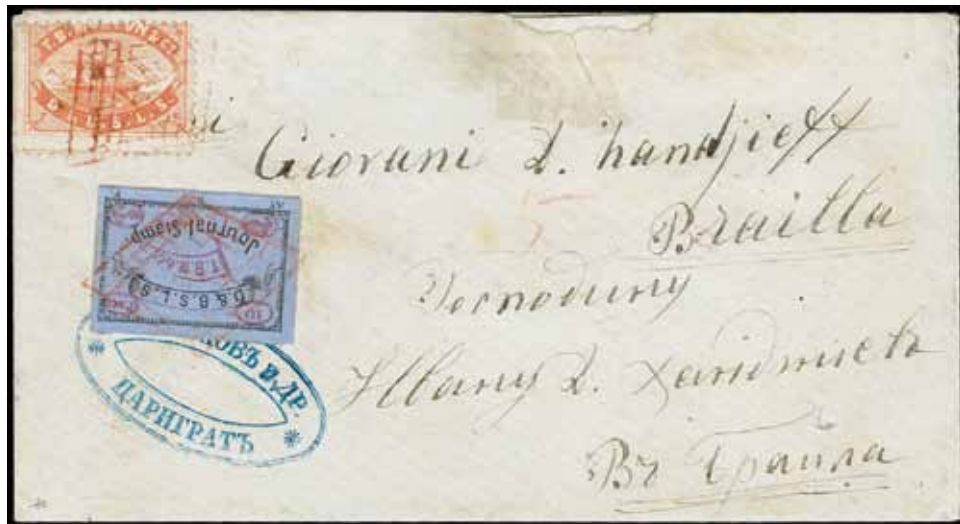 Giovani D. handjieff
Brailla
Господину
Ивану Д. Хаджиевъ
Въ Браила
Journal Stamp
D. & B. S. L. S.
10
ОВЪ И ДР.
ЦАРИГРАТЪ